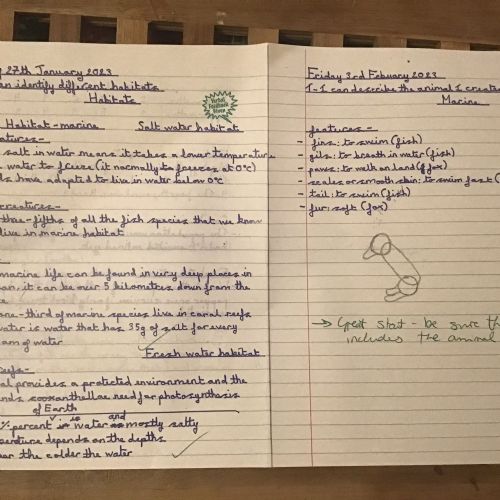 27th January 2023
identify different habitats
Habitats
Verbal
Feedback
Given
Habitat-marine Salt water habitat
salt in water means it takes a lower temperature
water to freeze (it normally to freezes at 0°c)
have adapted to live in water below 0°c
three-fifths of all the fish species that we know
live in marine habitat
marine life can be found in very deep places in
it can be over 5 kilometres down from the
one-third of marine species live in coral reefs
water is water that has 35g of salt for every
of water
Fresh water habitat
provides a protected environment and the
zooxanthallae need for photosynthesis
of Earth
percent is water and is mostly salty
depends on the depths
the colder the water
Friday 3rd Febuary 2023
I-I can describe the animal I create
Marine
features-
- fins: to swim (fish)
- gils: to breath in water (fish)
- paws: to walk on land (fox)
- scales or smooth skin: to swim fast (
- tail: to swim (fish)
- fur: soft (fox)
→ Great start - be sure
includes the animal